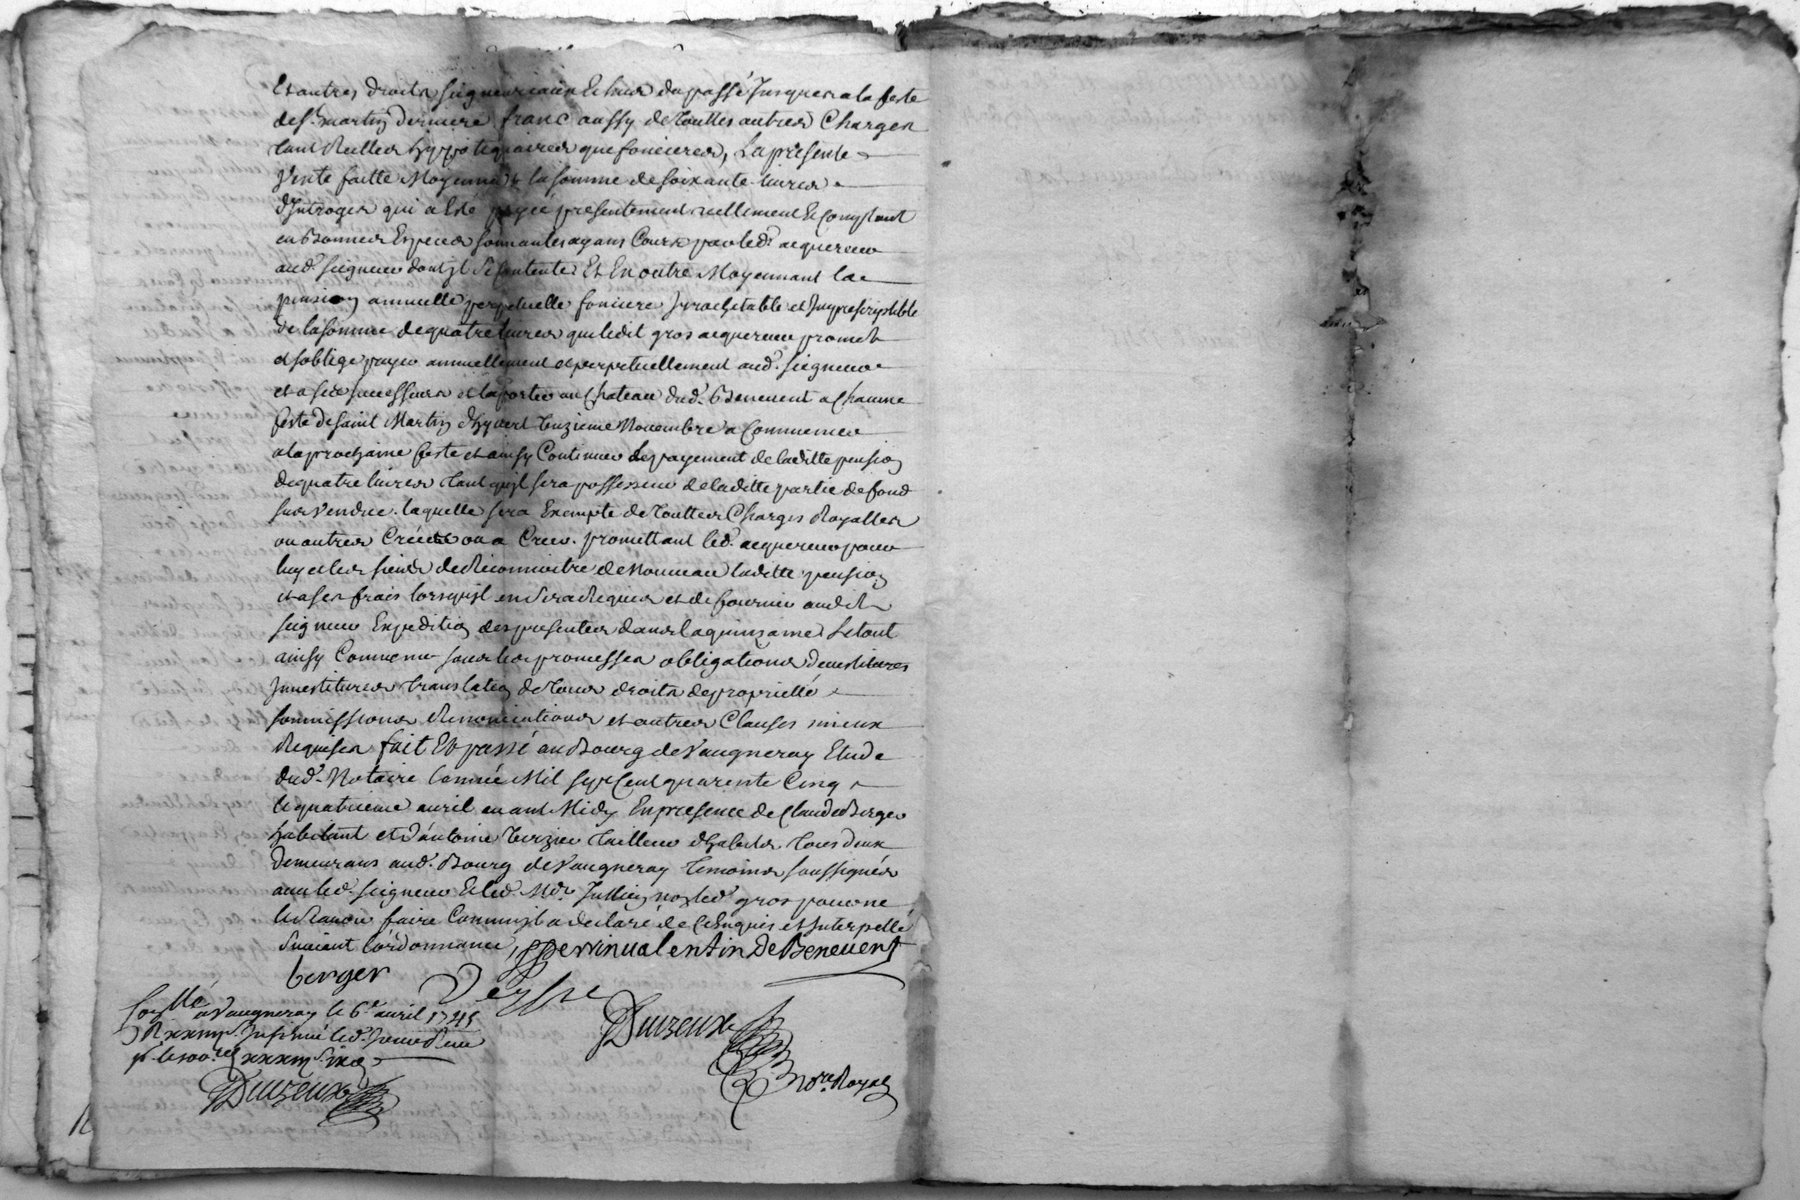 Et autres droits seigneuriaux Echus du passé Jusques a la feste
de st. martin derniere franc aussy de touttes autres Charges
tant Reelles hyppotequaires que foncieres, La presente
Vente faitte Moyennant la somme de soixante livres
d'Introges qui a Esté payée presentement reellement Et Comptant
en Bonnes Especes sonnantes ayans Cours par led. acquereur
aud. seigneur dont jl se Contente Et En outre Moyennant la
pension annuelle perpetuelle fonciere Jrrachetable et Jmprescriptible
de la somme de quatre livres que ledit gros acquereur promet
et soblige payer annuellement et perpetuellement aud. seigneur
et a ses successeurs et la porter au Chateau dud. Benevent a Chacune
feste de saint Martin d'hyvert Unzieme Novembre a Commencer
a la prochaine feste et ainsy Continuer le payement de laditte pension
de quatre livres tant qu'jl sera possesseur de laditte partie de fond
sus vendue. laquelle sera Exempte de touttes Charges Royalles
ou autres Créées ou a Creer. promettant led. acquereur pour
luy et les siens de Reconnoitre de Nouveau laditte pension
et a ses frais lorsqu'jl en sera Requis et de fournir audit
seigneur Expedition des presentes dans la quinzaine Le tout
ainsy Convenu sous les promesses obligations devestitures
Jnvestitures translation de tous droits de proprietté
soumissions Renonciations et autres Clauses mieux
Requises fait Et passé au Bourg de Vaugneray Etude
dud. Notaire l'année Mil sept Cent quarente Cinq
le quatrieme avril avant Midy En presence de Claude Berger
habitant et d'antoine Verzieu tailleur d'habits tous deux
demeurans aud. Bourg de Vaugneray temoins soussignés
avec led. seigneur Et led. Me. Jullien non led. gros pour ne
le scavoir faire Comme jl a declaré de Ce Enquis et Interpellé
suivant l'ordonnance, Perrin ualentin De Beneuent
berger
Duizeux
Nore. Royal
a Vaugneray le 6e. avril 1745
Duizeux